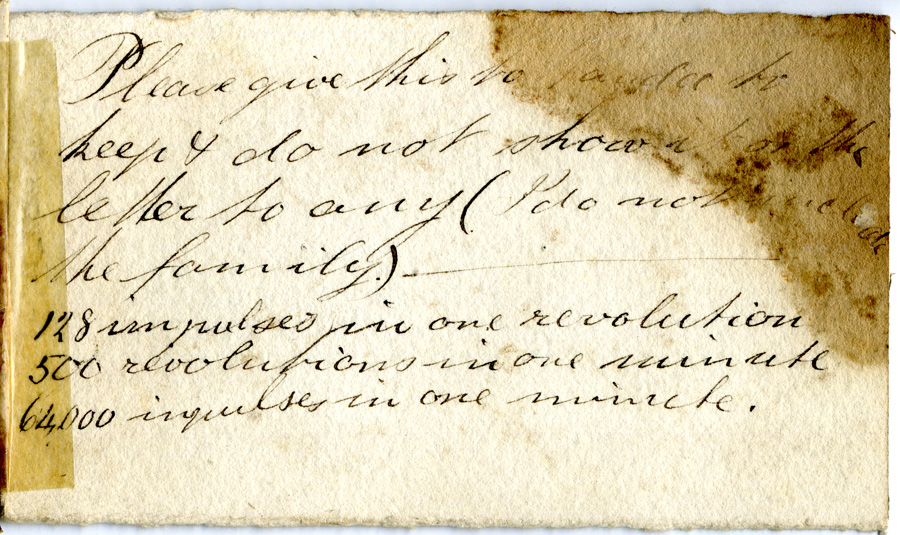 Please give this to to
keep & do not show it or the
letter to any (I do not include
the family.)
128 impulses in one revolution
500 revolutions in one minute
64,000 inpulses in one minute.